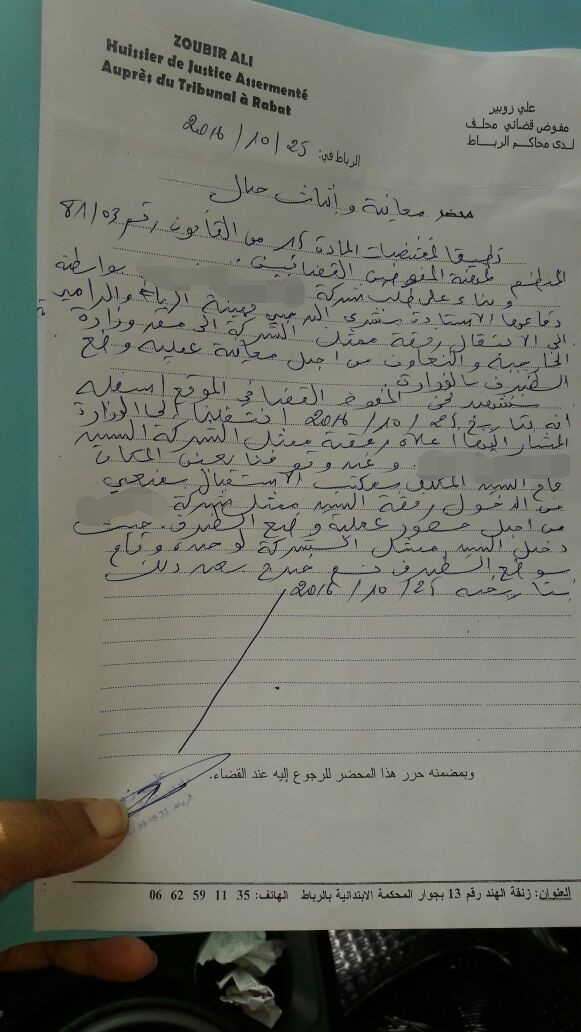 ZOUBIR ALI
Huissier de Justice Assermenté
Auprès du Tribunal à Rabat
علي زوبير
مفوض قضائي محلف
لدى محاكم الرباط
الرباط في: 2016/10/25
محضر معاينة و إثبات حال
تطبيقا لمقتضيات المادة 15 من القانون رقم 81/03
المنظم لمهنة المفوضين القضائيين.
و بناء على طلب شركة بواسطة
دفاعها الأستاذة بشرى بهيئة الرباط والرامي
الى الانتقال رفقة ممثل الشركة الى مقر وزارة
الخارجية و التعاون من اجل معاينة عملية وضع
الظرف بالوزارة
نشهد نحن المفوض القضائي الموقع اسفله
انه بتاريخ 2016/10/25 انتقلنا الى الوزارة
المشار اليها اعلاه رفقة ممثل الشركة السيد
و عند وقوفنا بعين المكان
قام السيد المكلف بمكتب الاستقبال بمنعي
من الدخول رفقة السيد ممثل شركة
من اجل حضور عملية وضع الظرف. حيث
دخل السيد ممثل الشركة لوحده، و قام
بوضع الظرف ثم خرج بعد ذلك
بتاريخه 2016/10/25
وبمضمنه حرر هذا المحضر للرجوع إليه عند القضاء.
العنوان: زنقة الهند رقم 13 بجوار المحكمة الابتدائية بالرباط الهاتف: 35 11 59 62 06